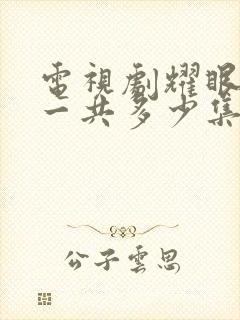 電視劇耀眼
一共多少集
公子雲思